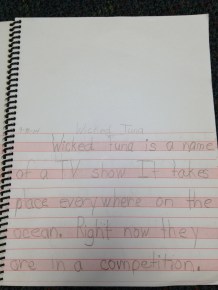 Wicked Tuna
Wicked Tuna is a name
of a TV show It takes
place everywhere on the
ocean. Right now they
are in a competition.